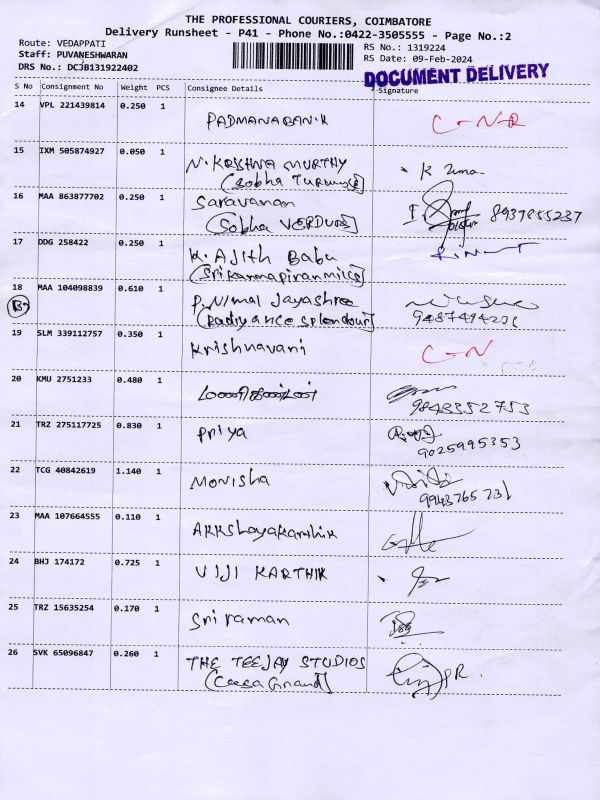 THE PROFESSIONAL COURIERS, COIMBATORE
Delivery Runsheet - P41 - Phone No.:0422-3505555 - Page No.:2
Route: VEDAPPATI
Staff: PUVANESHWARAN
DRS No.: DCJB131922402
RS No.: 1319224
RS Date: 09-Feb-2024
DOCUMENT DELIVERY
S No Consignment No Weight PCS Consignee Details Signature
14 VPL 221439814 0.250 1 PADMANABAN.K C-N-R
15 IXM 505874927 0.050 1 N.KRISHNA MURTHY K Uma
(Sobha Turquoise)
16 MAA 863877702 0.250 1 Saravanan 8937855237
(Sobha VERDURE)
17 DDG 258422 0.250 1 K. AJith Babu
(Srikannapiranmills)
18 MAA 104098839 0.610 1 P. Nimal Jayashree
(Radiyance Splendour)
19 SLM 339112757 0.350 1 Krishnavani C-N
20 KMU 2751233 0.480 1 மணிகண்டன் 9843352753
21 TRZ 275117725 0.830 1 Priya 9025995353
22 TCG 40842619 1.140 1 Monisha 9943765731
23 MAA 107664555 0.110 1 AKKShayaKarthik
24 BHJ 174172 0.725 1 VIJI KARTHIK
25 TRZ 15635254 0.170 1 Sri raman
26 SVK 65096847 0.260 1 THE TEEJAY STUDIOS
(Casa Grand)